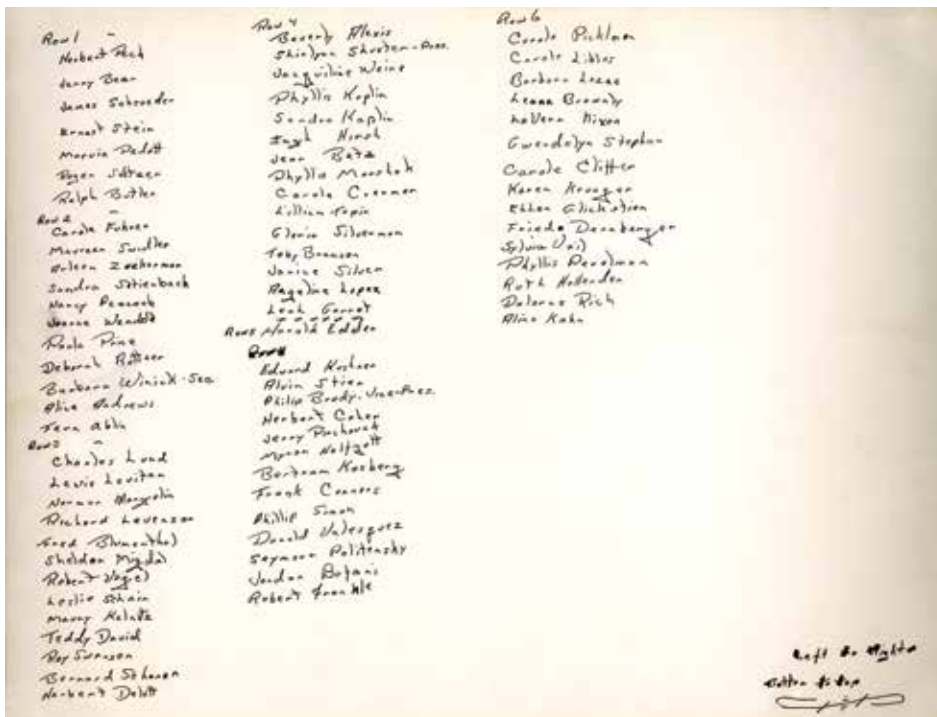 Row 1 -
Norbert Pech
Jerry Bear
James Schroeder
Ernest Stein
Marvin Delott
Roger Saltzer
Ralph Butler
Row 2 -
Carole Fuhrer
Maureen Swidler
Arleen Zuckerman
Sandra Stienback
Nancy Peacock
Joanne
Paula Prine
Deborah
Barbara Winick - Sec.
Alice Andrews
Fern Ablin
Row 3 -
Charles Lund
Lewis Levitan
Norman Margolin
Richard Levenson
Fred Blumenthal
Sheldon Migdal
Robert Vogel
Leslie Schain
Kalnitz
Teddy David
Roy Swenson
Bernard
Norbert Delott
Row 4
Beverly Alexis
Shirlyan - Pres.
Jacquiline Weine
Phyllis Kaplin
Sandra Kaplin
Hirsh
Jean Betz
Phyllis
Carole Creamer
Lillian Topin
Gloria Silverman
Toby Bronson
Janine Silver
Angeline Lopez
Leah Garret
Row 5 Harold Edden
Row
Eduard Kushner
Alvin Stien
Philip Brody - Vice-Pres.
Herbert Cohen
Jerry
Myron
Bertram Kosberg
Frank Conners
Phillip Simon
Donald Valesquez
Seymour Politensky
Jordan
Robert Frankle
Row 6
Carole Picklman
Carole Libles
Barbara
Leana Browndy
LaVern Nixon
Gwendolyn Stephan
Carole Cliffer
Karen Krueger
Ellen Glickstien
Frieda Dernberger
Sylvia
Phyllis Perelman
Ruth Hollender
Delores Rich
Aline Kahn
Left to Right
Bottom to top